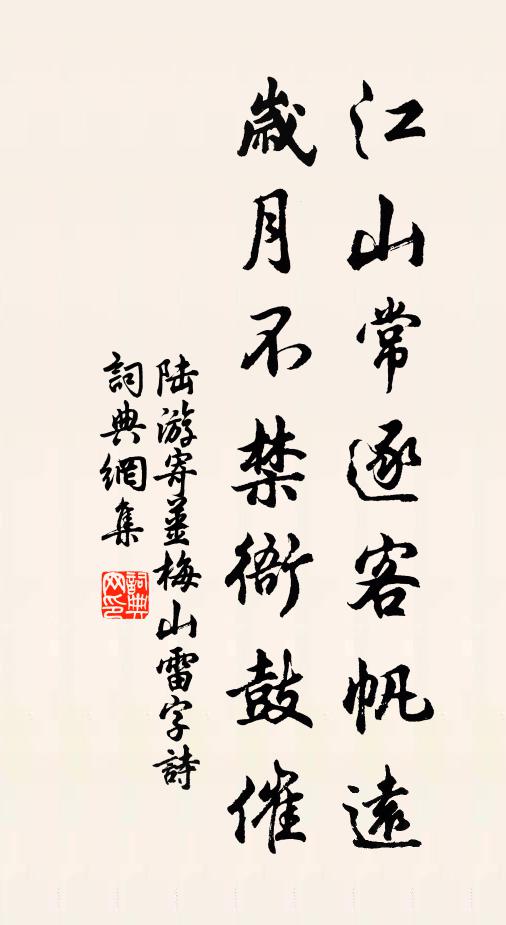 江山常逐客帆遠
歲月不禁衙鼓催
陆游寄姜梅山雷字詩
詞典網集
詞典网印